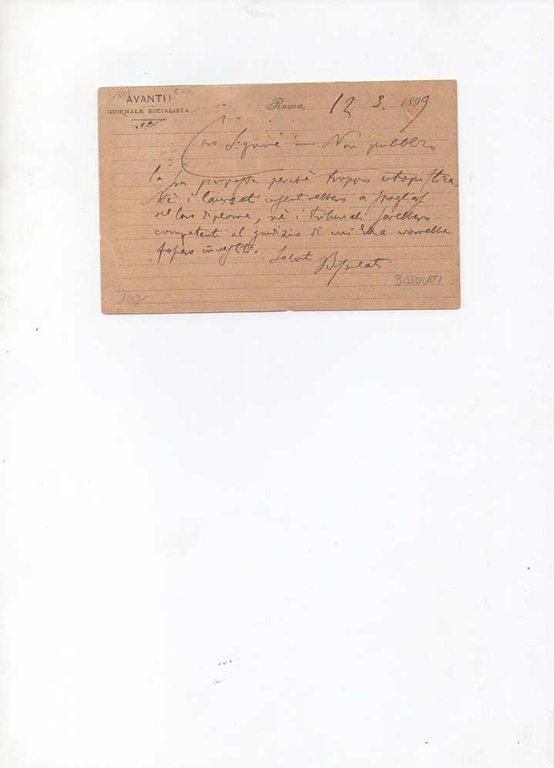 AVANTI!
GIORNALE SOCIALISTA
Roma, 12 3. 1899
Caro Signore! — Non pubblico
la sua proposta perchè troppo utopistica.
Nè i laureati
del loro diploma, nè i Tribunali sarebbero
competenti al giudizio di cui Ella vorrebbe
Saluti Bissolati
BISSOLATI